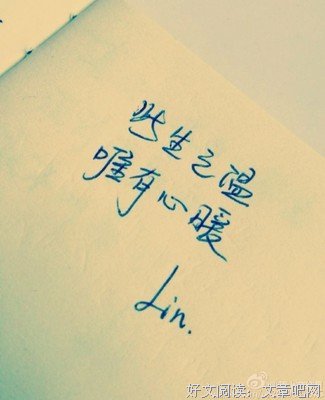 此生之温
唯有心暖
Lin.
好文阅读：文章吧网